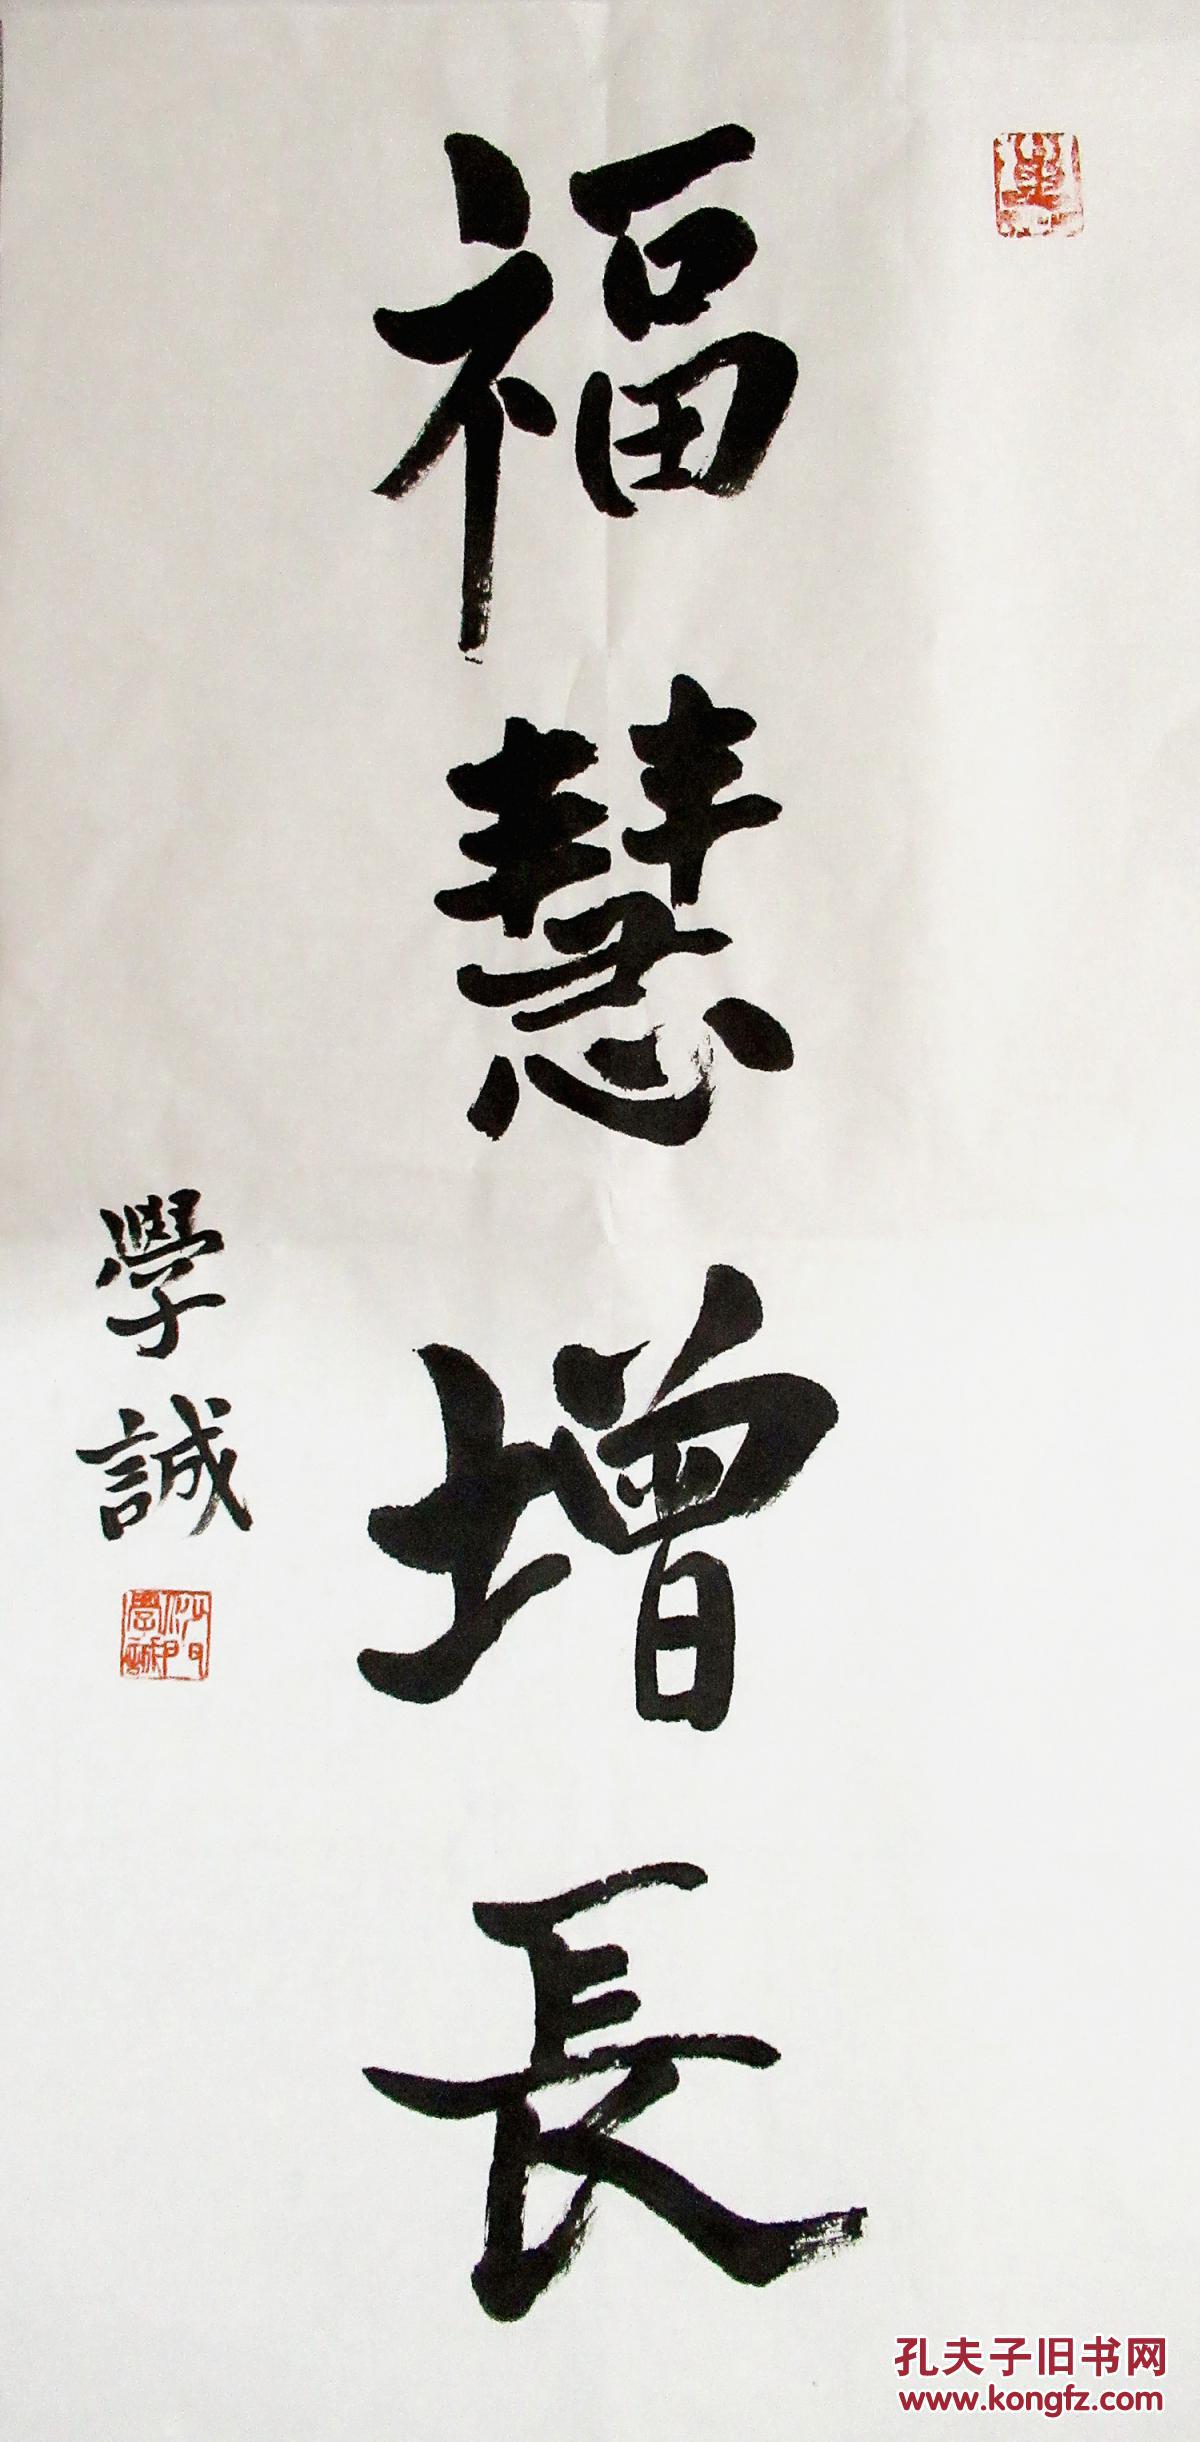 福慧增長
學誠
沙門學誠
孔夫子旧书网
www.kongfz.com